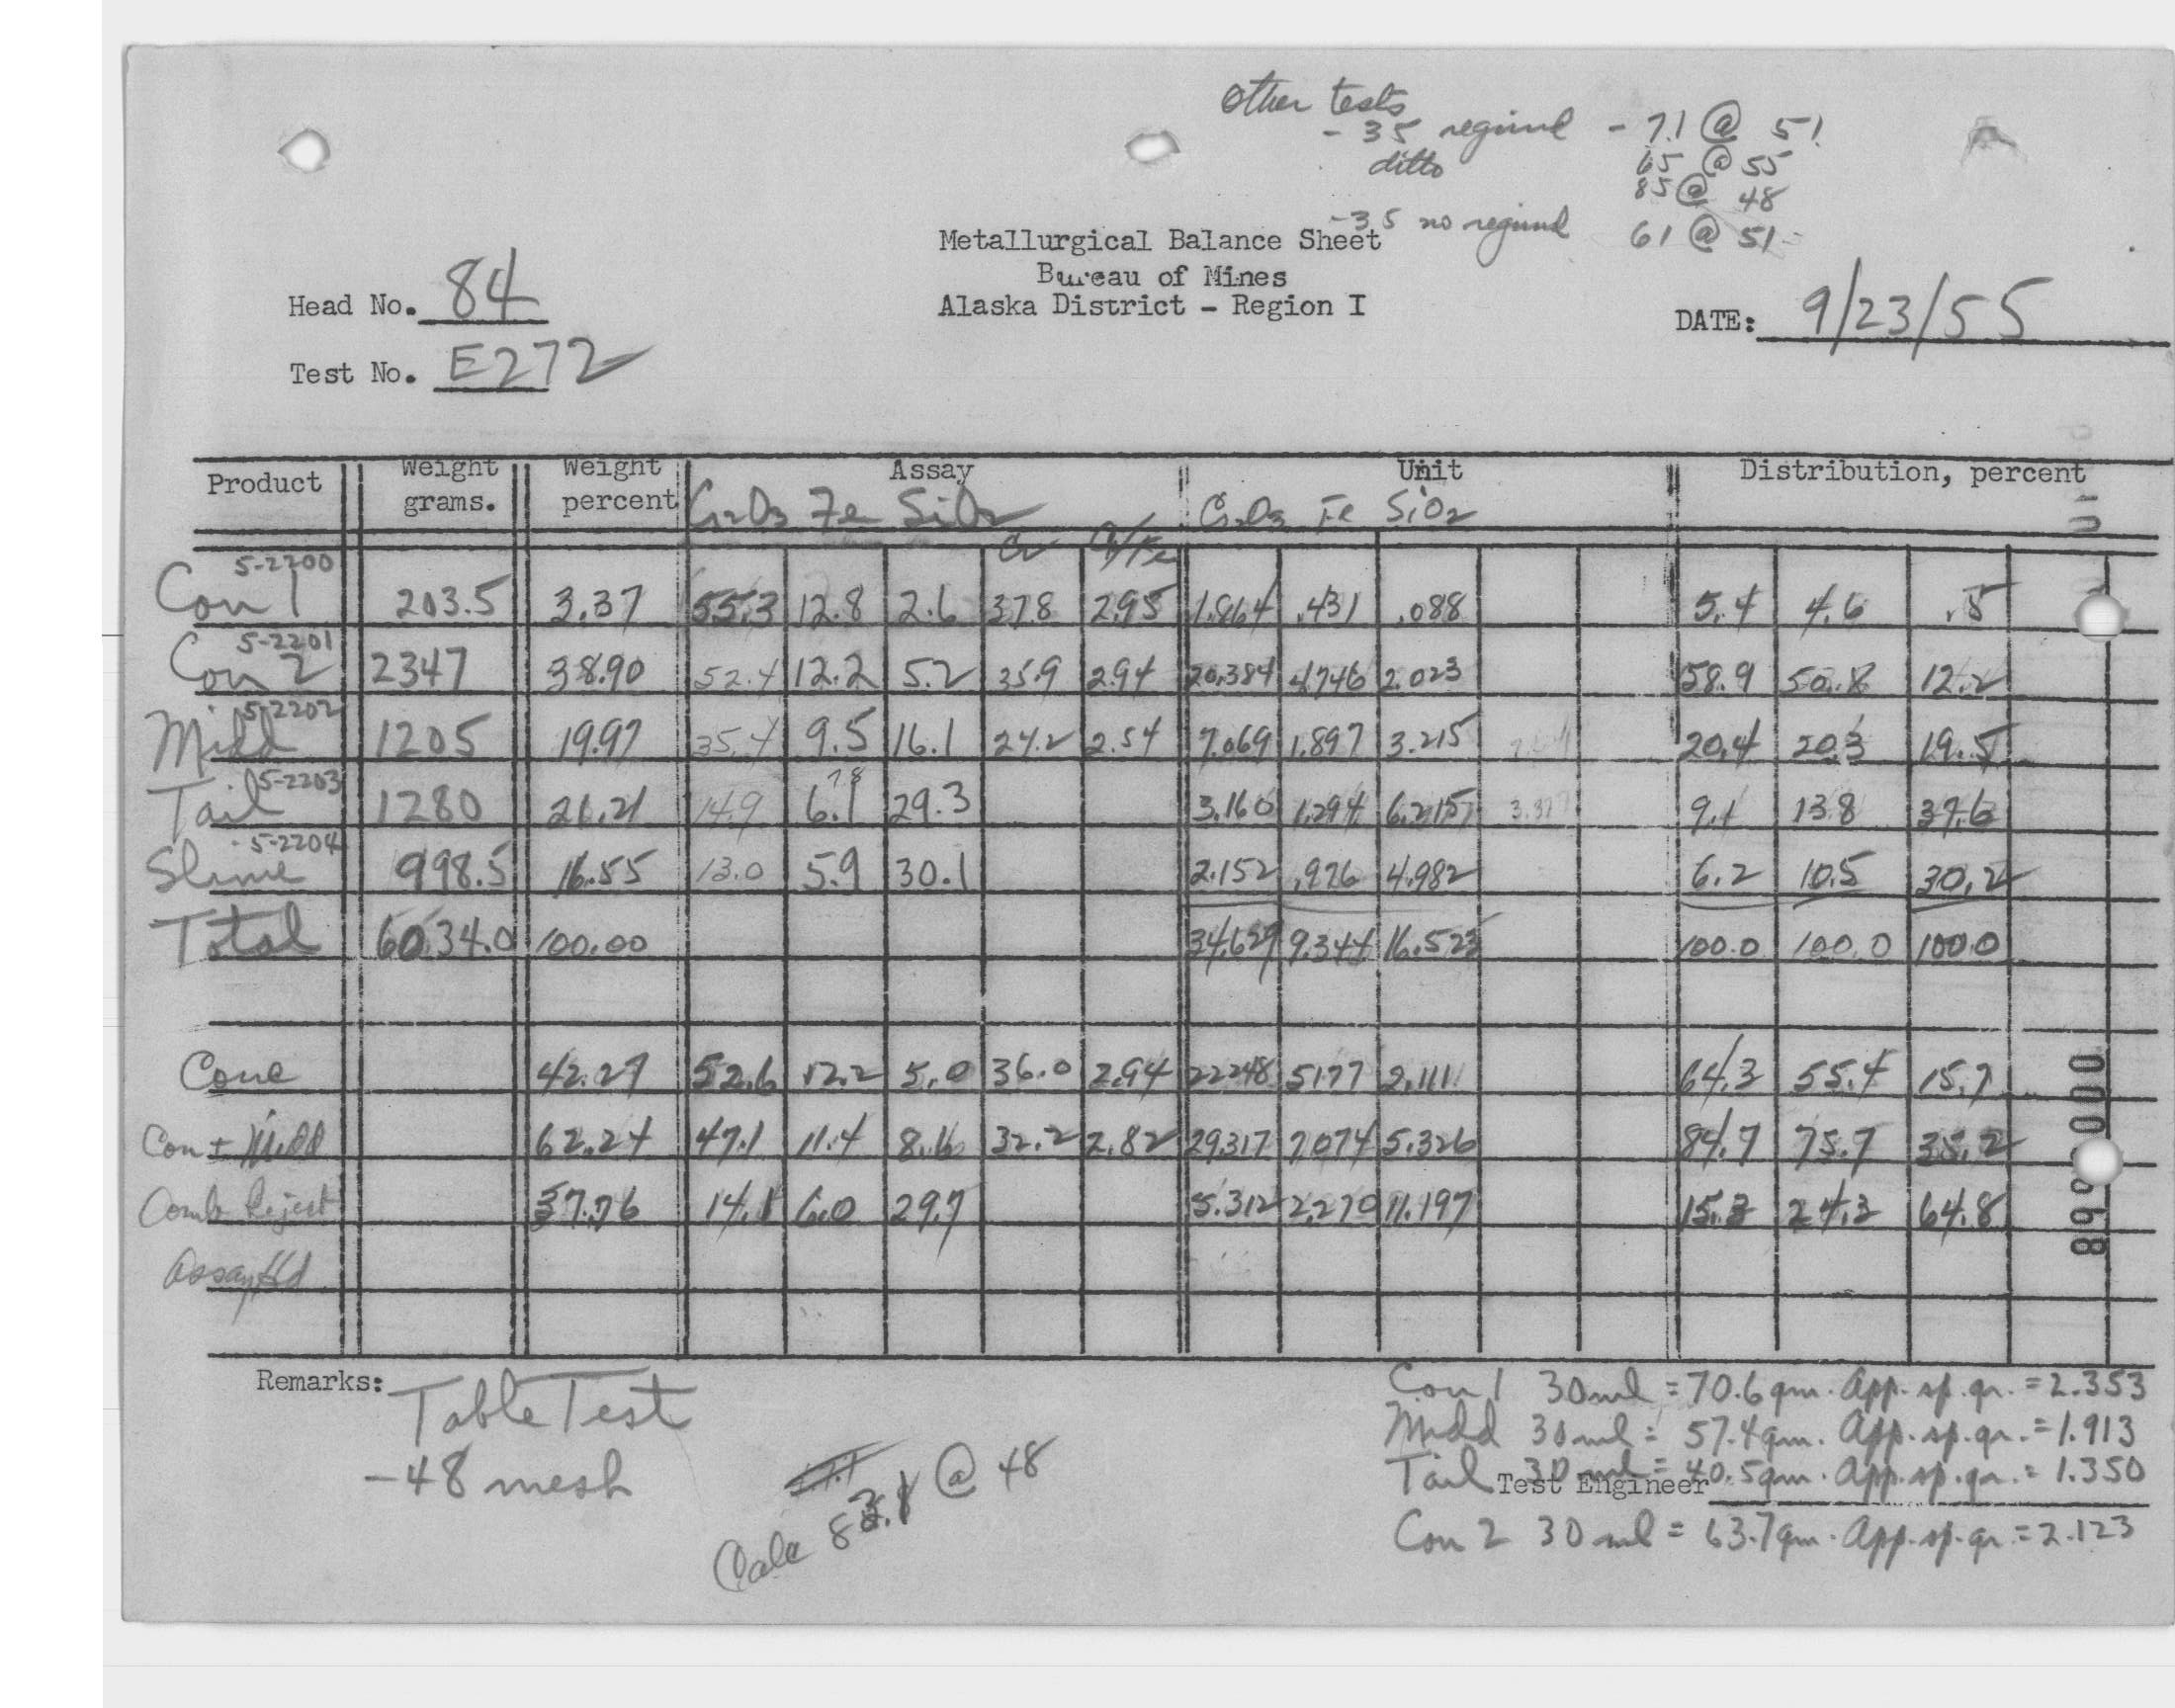 Other tests
- 35 regrind - 71 @ 51
ditto 65 @ 55
85 @ 48
-35 no regrind 61 @ 51
Metallurgical Balance Sheet
Bureau of Mines
Alaska District - Region I
Head No. 84
DATE: 9/23/55
Test No. E272
Product Weight grams. Weight percent Assay Unit Distribution, percent
Cr2O3 Fe SiO2 Cr Cr/Fe Cr2O3 Fe SiO2
5-2200
Con 1 203.5 3.37 55.3 12.8 2.6 37.8 2.95 1.864 .431 .088 5.4 4.6 .5
5-2201
Con 2 2347 38.90 52.4 12.2 5.2 35.9 2.94 20.384 4.746 2.023 58.9 50.8 12.2
5-2202
Midd 1205 19.97 35.4 9.5 16.1 24.2 2.54 7.069 1.897 3.215 20.4 20.3 19.5
5-2203
Tail 1280 21.21 14.9 6.1 29.3 3.160 1.294 6.215 9.1 13.8 37.6
5-2204
Slime 998.5 16.55 13.0 5.9 30.1 2.152 .976 4.982 6.2 10.5 30.2
Total 6034.0 100.00 34.629 9.344 16.523 100.0 100.0 100.0
Conc 42.27 52.6 12.2 5.0 36.0 2.94 22248 5177 2.111 64.3 55.4 15.7
Con + Midd 62.24 47.1 11.4 8.6 32.2 2.82 29.317 7.074 5.326 84.7 75.7 35.2
Comb Reject 37.76 14.1 6.0 29.7 5.312 2.270 11.197 15.3 24.3 64.8
Assay Hd
Remarks: Table Test
-48 mesh
Calc @ 48
Con 1 30 ml = 70.6 gm. App. sp. gr. = 2.353
Midd 30 ml = 57.4 gm. App. sp. gr. = 1.913
Tail 30 ml = 40.5 gm. App. sp. gr. = 1.350
Test Engineer
Con 2 30 ml = 63.7 gm. App. sp. gr. = 2.123